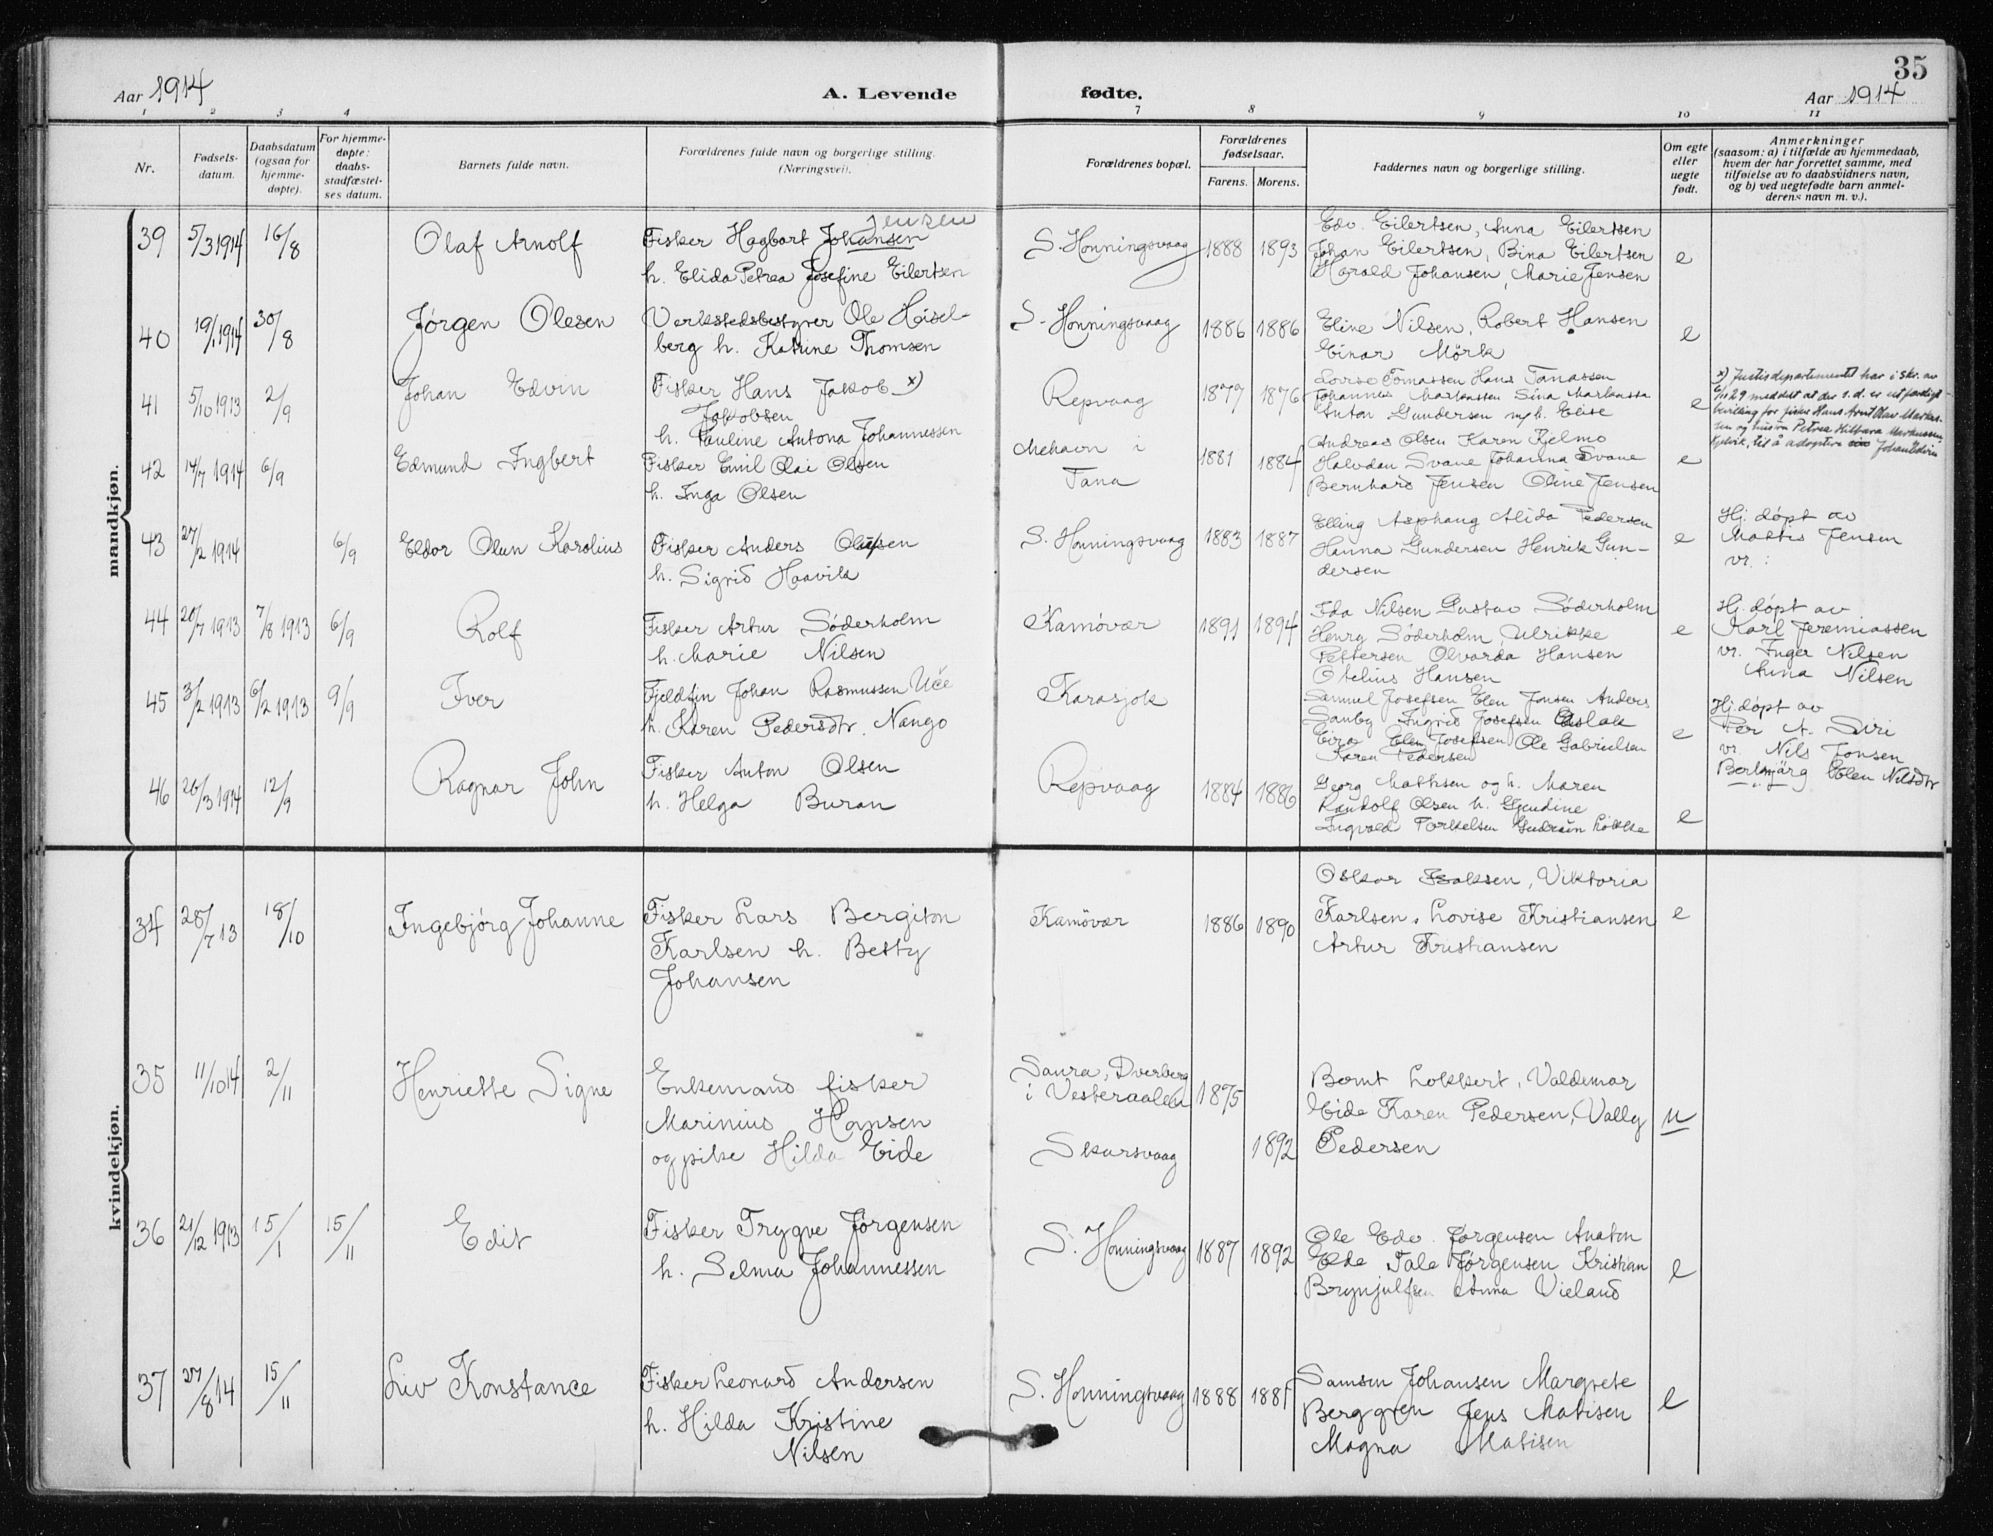 35
Aar 1914
A. Levende
fødte.
Aar 1914
1 2 3 4 7 8 9 10 11
Nr.
Fødsels-
datum.
Daabsdatum
(ogsaa for
hjemme-
døpte).
For hjemme-
døpte:
daabs-
stadfæstel-
ses datum.
Barnets fulde navn.
Forældrenes fulde navn og borgerlige stilling.
(Næringsvei).
Forældrenes bopæl.
Forældrenes
fødselsaar.
Farens. Morens.
Faddernes navn og borgerlige stilling.
Om egte
eller
uegte
født.
Anmerkninger
(saasom: a) i tilfælde av hjemmedaab,
hvem der har forrettet samme, med
tilføielse av to daabsvidners navn,
og b) ved uegtefødte barn anmel-
derens navn m. v.).
mandkjøn.
39 5/3 1914 16/8 Olaf Arnolf
Jensen
Fisker Hagbart Johansen
h. Elida Petrea Josefine Eilertsen
S. Honningsvaag 1888 1893
Edv. Eilertsen, Anna Eilertsen
Johan Eilertsen, Bina Eilertsen
Harald Johansen, Marie Jensen
e
40 19/1 1914 30/8 Jörgen Olesen
Verkstedsbestyrer Ole Heisel-
berg h. Katrine Thomsen
S. Honningsvaag 1886 1886
Eline Nilsen, Robert Hansen
Einar Mörk
e
41 5/10 1913 2/9 Johan Edvin
Fisker Hans Jakob x)
Jakobsen
h. Pauline Antona Johannessen
Repvaag 1877 1876
Lovise Tomassen Hans Tomassen
Johannes Markussen Sina Markussen
Anton Gundersen m/h. Elise
e
x) Justisdepartementet har i skr. av
6/11 29 meddelt at der s. d. er utferdiget
bevilling for fisker Hans Arnt Olav Markus-
sen og hustru Petrea Hilbara Markussen,
til å adoptere Johan Edvin
42 14/7 1914 6/9 Edmund Ingbert
Fisker Emil Olai Olsen
h. Inga Olsen
Mehavn i
Tana
1881 1884
Andreas Olsen Karen Kjelmo
Halvdan Svane Johanna Svane
Bernhard Jensen Oline Jensen
e
43 27/2 1914 6/9 Eldor Olun Karolius
Fisker Anders Olufsen
h. Sigrid Haavik
S. Honningsvaag 1883 1887
Elling Asphaug Alida Pedersen
Hanna Gundersen Henrik Gun-
dersen
e
Hj. döpt av
Mattis Jensen
vr. :
44 20/7 1913 7/8 1913 6/9 Rolf
Fisker Artur Söderholm
h. Marie Nilsen
Kamövær 1891 1894
Ida Nilsen Gustav Söderholm
Henry Söderholm, Ulrikke
Pettersen Olvarda Hansen
Otelius Hansen
e
Hj. döpt av
Karl Jeremiassen
vr. Inger Nilsen
Anna Nilsen
45 3/2 1913 6/2 1913 9/9 Iver
Fjeldfin Johan Rasmussen Uče
h. Karen Pedersdtr. Nango
Karasjok
Samuel Josefsen Elen Jonsen Anders
Somby Ingrid Josefsen Aslak
Eira Elen Josefsen Ole Gabrielsen
Karen Pedersen
e
Hj. döpt av
Per A. Siri
vr. Nils Jonsen
Elen Nilsdtr
46 20/3 1914 12/9 Ragnar John
Fisker Anton Olsen
h. Helga Buran
Repvaag 1884 1886
Georg Mathisen og h. Maren
Randolf Olsen h. Gjendine
Ingvald Torkelsen Gudrun Lökke
e
kvindekjøn.
34 28/7 13 18/10 Ingebjörg Johanne
Fisker Lars Bergiton
Karlsen h. Betty
Johansen
Kamövær 1886 1890
Oskar Isaksen, Viktoria
Karlsen, Lovise Kristiansen
Artur Kristiansen
e
35 11/10 14 2/11 Henriette Signe
Enkemand fisker
Marinius Hansen
og pike Hilda Eide
Saura, Dverberg
i Vesteraalen 1875
Skarsvaag 1892
Bernt Lokkert, Valdemar
Eide Karen Pedersen, Vally
Pedersen
u
36 21/12 1913 15/1 15/11 Edit
Fisker Trygve Jörgensen
h. Selma Johannessen
S. Honningsvaag 1887 1892
Ole Edv. Jörgensen Anton
Elde Tale Jörgensen Kristian
Brynjulfsen Anna Vieland
e
37 27/8 14 15/11 Liv Konstance
Fisker Leonard Andersen
h. Hilda Kristine
Nilsen
S. Honningsvaag 1888 1881
Samson Johansen Margrete
Berggren Jens Matisen
Magna Matisen
e